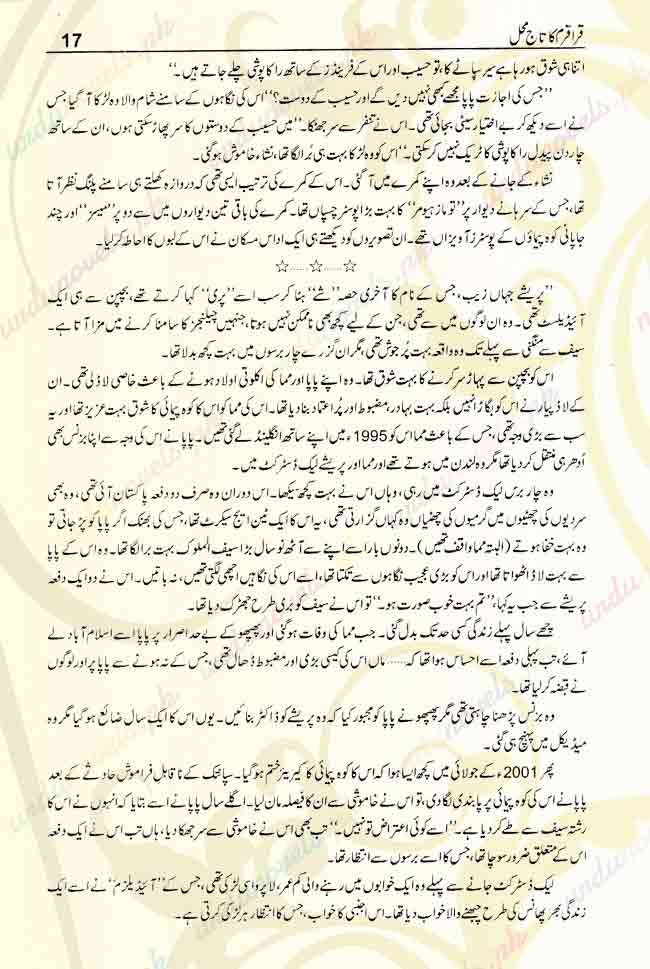 قراقرم کا تاج محل
17
اتنا ہی شوق ہو رہا ہے سیر سپاٹے کا، تو حسیب اور اس کے فرینڈز کے ساتھ راکاپوشی چلے جاتے ہیں۔‘‘
’’جس کی اجازت پاپا مجھے کبھی نہیں دیں گے اور حسیب کے دوست؟‘‘ اس کی نگاہوں کے سامنے شام والا وہ لڑکا آ گیا جس
نے اسے دیکھ کر بے اختیار سیٹی بجائی تھی۔ اس نے تنفر سے سر جھٹکا۔ ’’میں حسیب کے دوستوں کا سر پھاڑ سکتی ہوں، ان کے ساتھ
چار دن پیدل راکاپوشی کا ٹریک نہیں کر سکتی۔‘‘ اس کو وہ لڑکا بہت ہی برا لگا تھا، نشاء خاموش ہو گئی۔
نشاء کے جانے کے بعد وہ اپنے کمرے میں آ گئی۔ اس کے کمرے کی ترتیب ایسی تھی کہ دروازہ کھلتے ہی سامنے پلنگ نظر آتا
تھا، جس کے سرہانے دیوار پر ’’توماز ہیومر‘‘ کا بہت بڑا پوسٹر چسپاں تھا۔ کمرے کی باقی تین دیواروں میں سے دو پر ’’میسز‘‘ اور چند
جاپانی کوہ پیماؤں کے پوسٹرز آویزاں تھے۔ ان تصویروں کو دیکھتے ہی ایک اداس مسکان نے اس کے لبوں کا احاطہ کر لیا۔
☆.....☆.....☆
’’پریشے جہاں زیب، جس کے نام کا آخری حصہ ’’شے‘‘ بنا کر سب اسے ’’پری‘‘ کہا کرتے تھے، بچپن سے ہی ایک
آئیڈیلسٹ تھی۔ وہ ان لوگوں میں سے تھی، جن کے لیے کچھ بھی ناممکن نہیں ہوتا، جنہیں چیلنجز کا سامنا کرنے میں مزا آتا ہے۔
سیف سے منگنی سے پہلے تک وہ واقعہ بہت پُرجوش تھی، مگر ان گزرے چار برسوں میں بہت کچھ بدلا تھا۔
اس کو بچپن سے پہاڑ سر کرنے کا بہت شوق تھا۔ وہ اپنے پاپا اور مما کی اکلوتی اولاد ہونے کے باعث خاصی لاڈلی تھی۔ ان
کے لاڈ پیار نے اس کو بگاڑا نہیں بلکہ بہت بہادر، مضبوط اور پُراعتماد بنا دیا تھا۔ اس کی مما کو اس کا کوہ پیمائی کا شوق بہت عزیز تھا اور یہ
سب سے بڑی وجہ تھی، جس کے باعث مما اس کو 1995ء میں اپنے ساتھ انگلینڈ لے گئی تھیں۔ پاپا نے اس کی وجہ سے اپنا بزنس بھی
اُدھر ہی منتقل کر دیا تھا مگر وہ لندن میں ہوتے تھے اور مما اور پریشے لیک ڈسٹرکٹ میں۔
وہ چار برس لیک ڈسٹرکٹ میں رہی، وہاں اس نے بہت کچھ سیکھا۔ اس دوران وہ صرف دو دفعہ پاکستان آئی تھی، وہ بھی
سردیوں کی چھٹیوں میں گرمیوں کی چھٹیاں وہ کہاں گزارتی تھی، یہ اس کا ایک ٹین ایج سیکرٹ تھا، جس کی بھنک اگر پاپا کو پڑ جاتی تو
وہ بہت خفا ہوتے (البتہ مما واقف تھیں)۔ دونوں بار اسے اپنے سے آٹھ نو سال بڑا سیف الملوک بہت برا لگا تھا۔ وہ اس کے پاپا
سے بہت لاڈ اٹھواتا تھا اور اس کو بڑی عجیب نگاہوں سے تکتا تھا، اسے اس کی نگاہیں اچھی لگتی تھیں، نہ باتیں۔ اس نے دو ایک دفعہ
پریشے سے جب یہ کہا، ’’تم بہت خوب صورت ہو۔‘‘ تو اس نے سیف کو بری طرح جھڑک دیا تھا۔
چھے سال پہلے زندگی کسی حد تک بدل گئی۔ جب مما کی وفات ہو گئی اور پھپھو کے بے حد اصرار پر پاپا اسے اسلام آباد لے
آئے، تب پہلی دفعہ اسے احساس ہوا تھا کہ ..... ماں اس کی کیسی بڑی اور مضبوط ڈھال تھی، جس کے نہ ہونے سے پاپا پر اور لوگوں
نے قبضہ کر لیا تھا۔
وہ بزنس پڑھنا چاہتی تھی مگر پھپھو نے پاپا کو مجبور کیا کہ وہ پریشے کو ڈاکٹر بنائیں۔ یوں اس کا ایک سال ضائع ہو گیا مگر وہ
میڈیکل میں پہنچ ہی گئی۔
پھر 2001ء کے جولائی میں کچھ ایسا ہوا کہ اس کا کوہ پیمائی کا کیریئر ختم ہو گیا۔ سپانٹک کے ناقابل فراموش حادثے کے بعد
پاپا نے اس کی کوہ پیمائی پر پابندی لگا دی، تو اس نے خاموشی سے ان کا فیصلہ مان لیا۔ اگلے سال پاپا نے اسے بتایا کہ انہوں نے اس کا
رشتہ سیف سے طے کر دیا ہے۔ ’’اسے کوئی اعتراض تو نہیں۔‘‘ تب بھی اس نے خاموشی سے سر جھکا دیا، ہاں تب اس نے ایک دفعہ
اس کے متعلق ضرور سوچا تھا، جس کا اسے برسوں سے انتظار تھا۔
لیک ڈسٹرکٹ جانے سے پہلے وہ ایک خوابوں میں رہنے والی کم عمر، لاپروا سی لڑکی تھی، جس کے ’’آئیڈیلزم‘‘ نے اسے ایک
زندگی بھر پھانس کی طرح چبھنے والا خواب دیا تھا۔ اس اجنبی کا خواب، جس کا انتظار ہر لڑکی کرتی ہے۔
urdunovels.pk